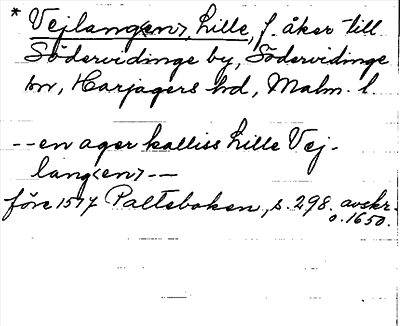 * Vejlang<en>, Lille, f. åker till
Södervidinge by, Södervidinge
sn, Harjagers hd, Malm. l.
--en ager kalliss Lille Vej-
lang<en>--
före 1517 Palteboken, s. 298. avskr.
o. 1650.